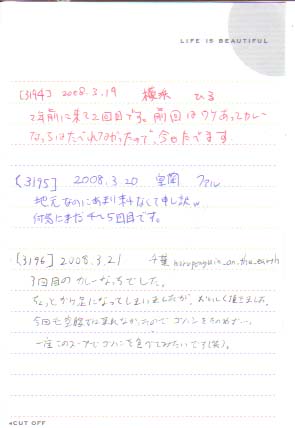 LIFE IS BEAUTIFUL
[3194] 2008.3.19 横浜 ひろ
2年前に来て2回目です。前回はワケあってカレー
なっちはたべれなかったので今日たべます
[3195] 2008.3.20 室蘭 ファル
地元なのにあまり来なくて申し訳
何気にまだ4〜5回目です。
[3196] 2008.3.21 千葉 hiropenguin_on_the_earth
3回目のカレーなっちでした。
ちょっとから足になってしまいましたが、おいしく頂きました。
今回も空腹では来れなかったのでゴハンを
一度このスープでゴハンを食べてみたいです(笑)。
◂CUT OFF